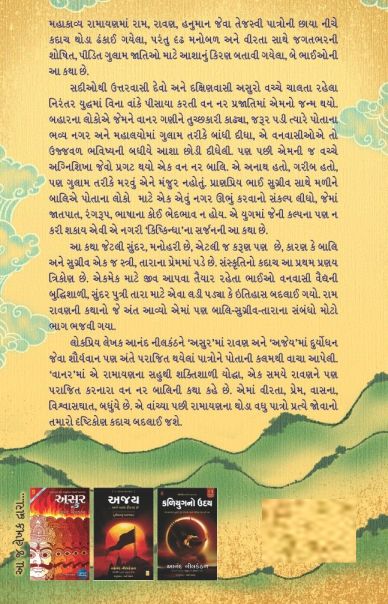 મહાકાવ્ય રામાયણમાં રામ, રાવણ, હનુમાન જેવા તેજસ્વી પાત્રોની છાયા નીચે
કદાચ થોડા ઢંકાઈ ગયેલા, પરંતુ દૃઢ મનોબળ અને વીરતા સાથે જગતભરની
શોષિત, પીડિત ગુલામ જાતિઓ માટે આશાનું કિરણ બતાવી ગયેલા, બે ભાઈઓની
આ કથા છે.
સદીઓથી ઉત્તરવાસી દેવો અને દક્ષિણવાસી અસુરો વચ્ચે ચાલતા રહેલા
નિરંતર યુદ્ધમાં વિના વાંકે પીસાયા કરતી વન નર પ્રજાતિમાં એમનો જન્મ થયો.
બહારના લોકોએ જેમને વાનર ગણીને તુચ્છકારી કાઢ્યા, જરૂર પડી ત્યારે પોતાના
ભવ્ય નગર અને મહાલયોમાં ગુલામ તરીકે બાંધી દીધા, એ વનવાસીઓએ તો
ઉજ્જવળ ભવિષ્યની બધીયે આશા છોડી દીધેલી. પણ પછી એમની જ વચ્ચે
અગ્નિશિખા જેવો પ્રગટ થયો એક વન નર બાલિ. એ અનાથ હતો, ગરીબ હતો,
પણ ગુલામ તરીકે મરવું એને મંજુર નહોતું. પ્રાણપ્રિય ભાઈ સુગ્રીવ સાથે મળીને
બાલિએ પોતાના લોકો માટે એક એવું નગર ઊભું કરવાનો સંકલ્પ લીધો, જેમાં
જાતપાત, રંગરૂપ, ભાષાના કોઈ ભેદભાવ ન હોય. એ યુગમાં જેની કલ્પના પણ ન
કરી શકાય એવી એ નગરી ‘કિષ્કિન્ધા’ના સર્જનની આ કથા છે.
આ કથા જેટલી સુંદર, મનોહરી છે, એટલી જ કરૂણ પણ છે, કારણ કે બાલિ
અને સુગ્રીવ એક જ સ્ત્રી, તારાના પ્રેમમાં પડે છે. સંસ્કૃતિનો કદાચ આ પ્રથમ પ્રણય
ત્રિકોણ છે. એકમેક માટે જીવ આપવા તૈયાર રહેતા ભાઈઓ વનવાસી વૈદ્યની
બુદ્ધિશાળી, સુંદર પુત્રી તારા માટે એવા લડી પડ્યા કે ઇતિહાસ બદલાઈ ગયો. રામ
રાવણની કથાનો જે અંત આવ્યો એમાં પણ બાલિ-સુગ્રીવ-તારાના સંબંધો મોટો
ભાગ ભજવી ગયા.
લોકપ્રિય લેખક આનંદ નીલકંઠને ‘અસુર’માં રાવણ અને ‘અજેય’માં દુર્યોધન
જેવા શૌર્યવાન પણ અંતે પરાજિત થયેલાં પાત્રોને પોતાની કલમથી વાચા આપેલી.
‘વાનર’માં એ રામાયણના સહુથી શક્તિશાળી યોદ્ધા, એક સમયે રાવણને પણ
પરાજિત કરનારા વન નર બાલિની કથા કહે છે. એમાં વીરતા, પ્રેમ, વાસના,
વિશ્વાસઘાત, બધુંયે છે. એ વાંચ્યા પછી રામાયણના થોડા વધુ પાત્રો પ્રત્યે જોવાનો
તમારો દૃષ્ટિકોણ કદાચ બદલાઈ જશે.
આ જ લેખક દ્વારા...
અસુર
અજય
કળિયુગનો ઉદય
આનંદ નીલકંઠન